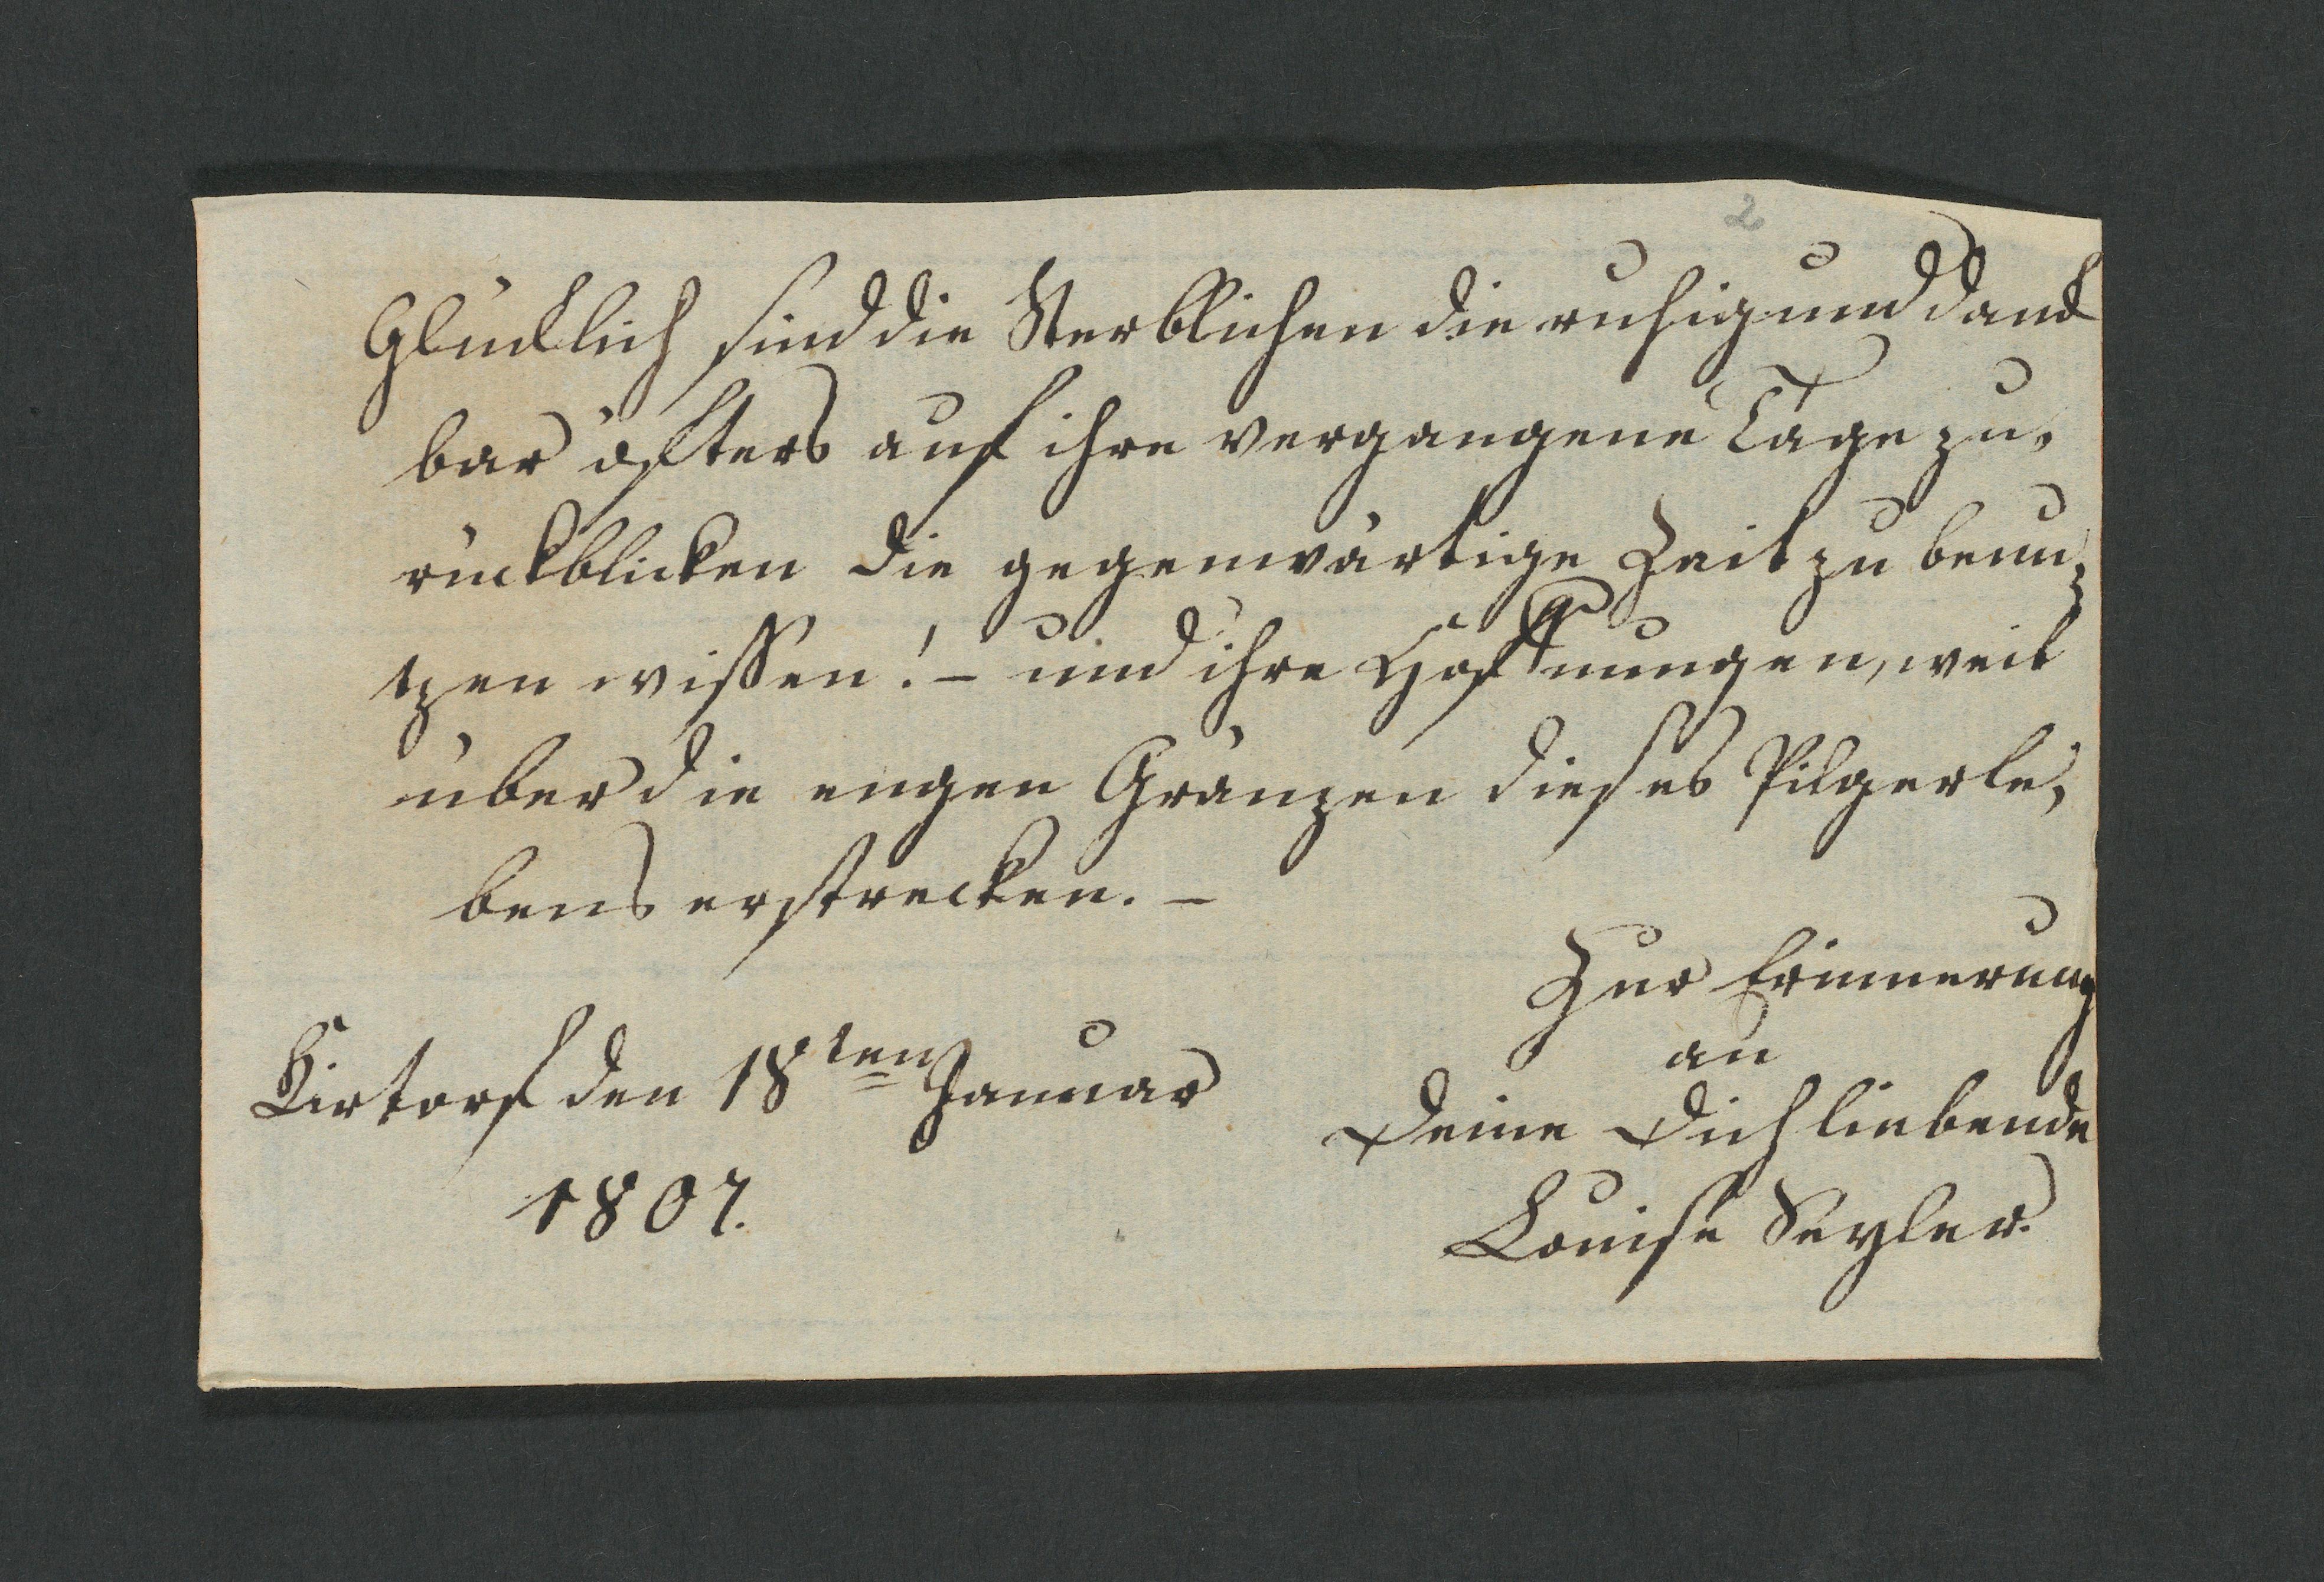 2
Glücklich sind die Sterblichen die ruhig und danck
bar öfters auf ihre vergangene Tage zu-
rückblicken die gegenwärtige Zeit zu benu-
tzen wissen! – und ihre Hoffnungen, weit
über die engen Gränzen dieses Pilgerle-
bens erstrecken. –
Zur Erinnerung
an
Deine Dich liebende
Louise Seyler.
Kirtorf den 18ten Januar
1807.